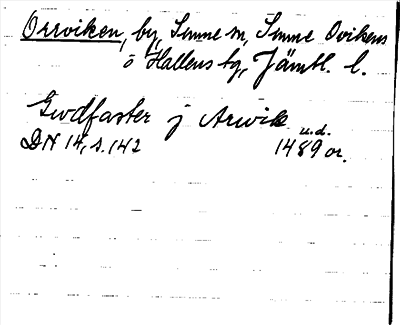 Orrviken, by, Sunne sn, Sunne Ovikens
o Hallens tg, Jämtl. l.
Gudfaster j Arwik u.d.
DN 14, s. 142 1489 or.